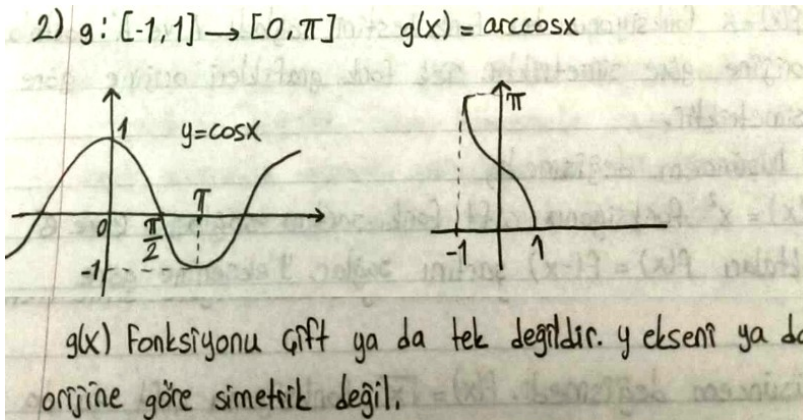 2) g : [-1,1] → [0,π]  g(x) = arccosx
1 y=cosx
0 π/2 π
-1
π
-1 1
g(x) Fonksiyonu çift ya da tek değildir. y ekseni ya da
orijine göre simetrik değil.